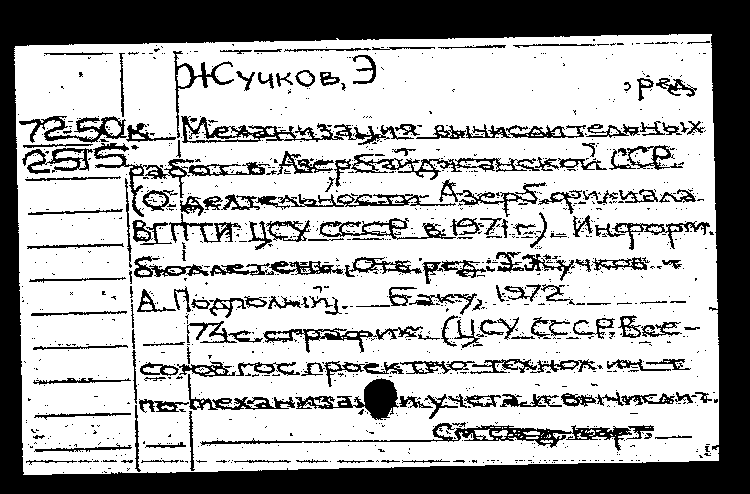 Жучков, Э
, ред.
72-50к Механизация вычислительных
2515 работ в Азербайджанской ССР.
(О деятельности Азерб. филиала
ВГПТИ ЦСУ СССР в 1971 г.). Информ.
бюллетень. Отв. ред. Э. Жучков и
А. Подпольный. Баку, 1972.
74 с. с график. (ЦСУ СССР. Все-
союз. гос. проектно-технол. ин-т
по механизации учета и вычислит.
См. след. карт.